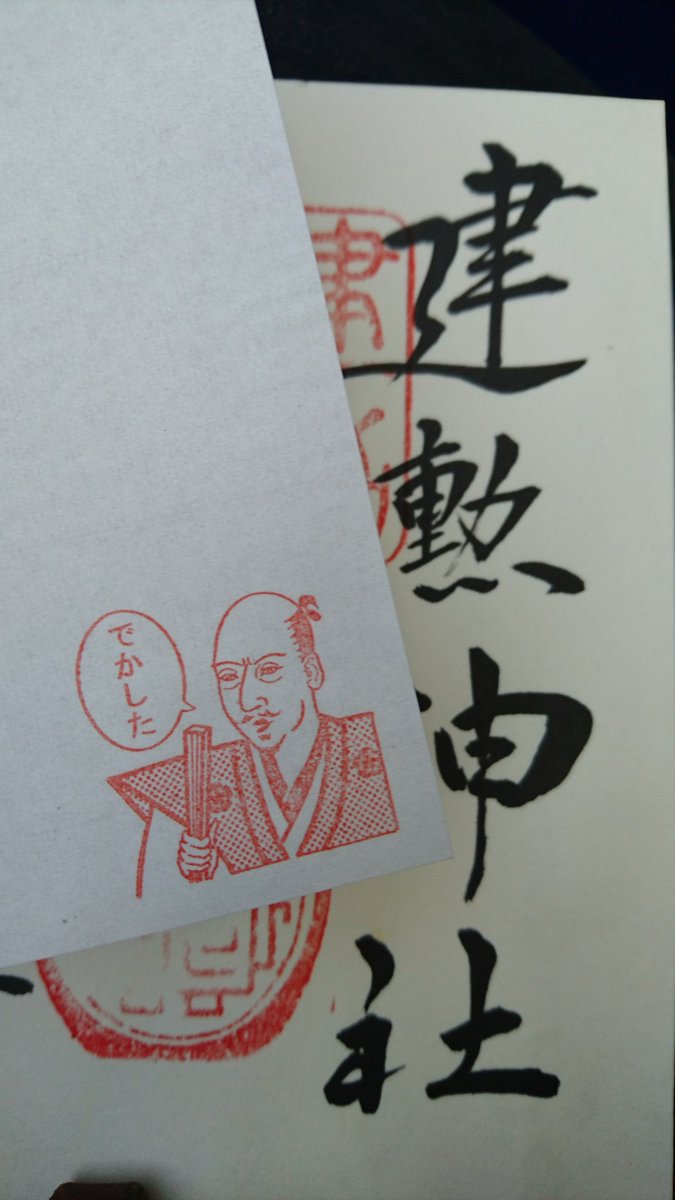 建勲神社
でかした